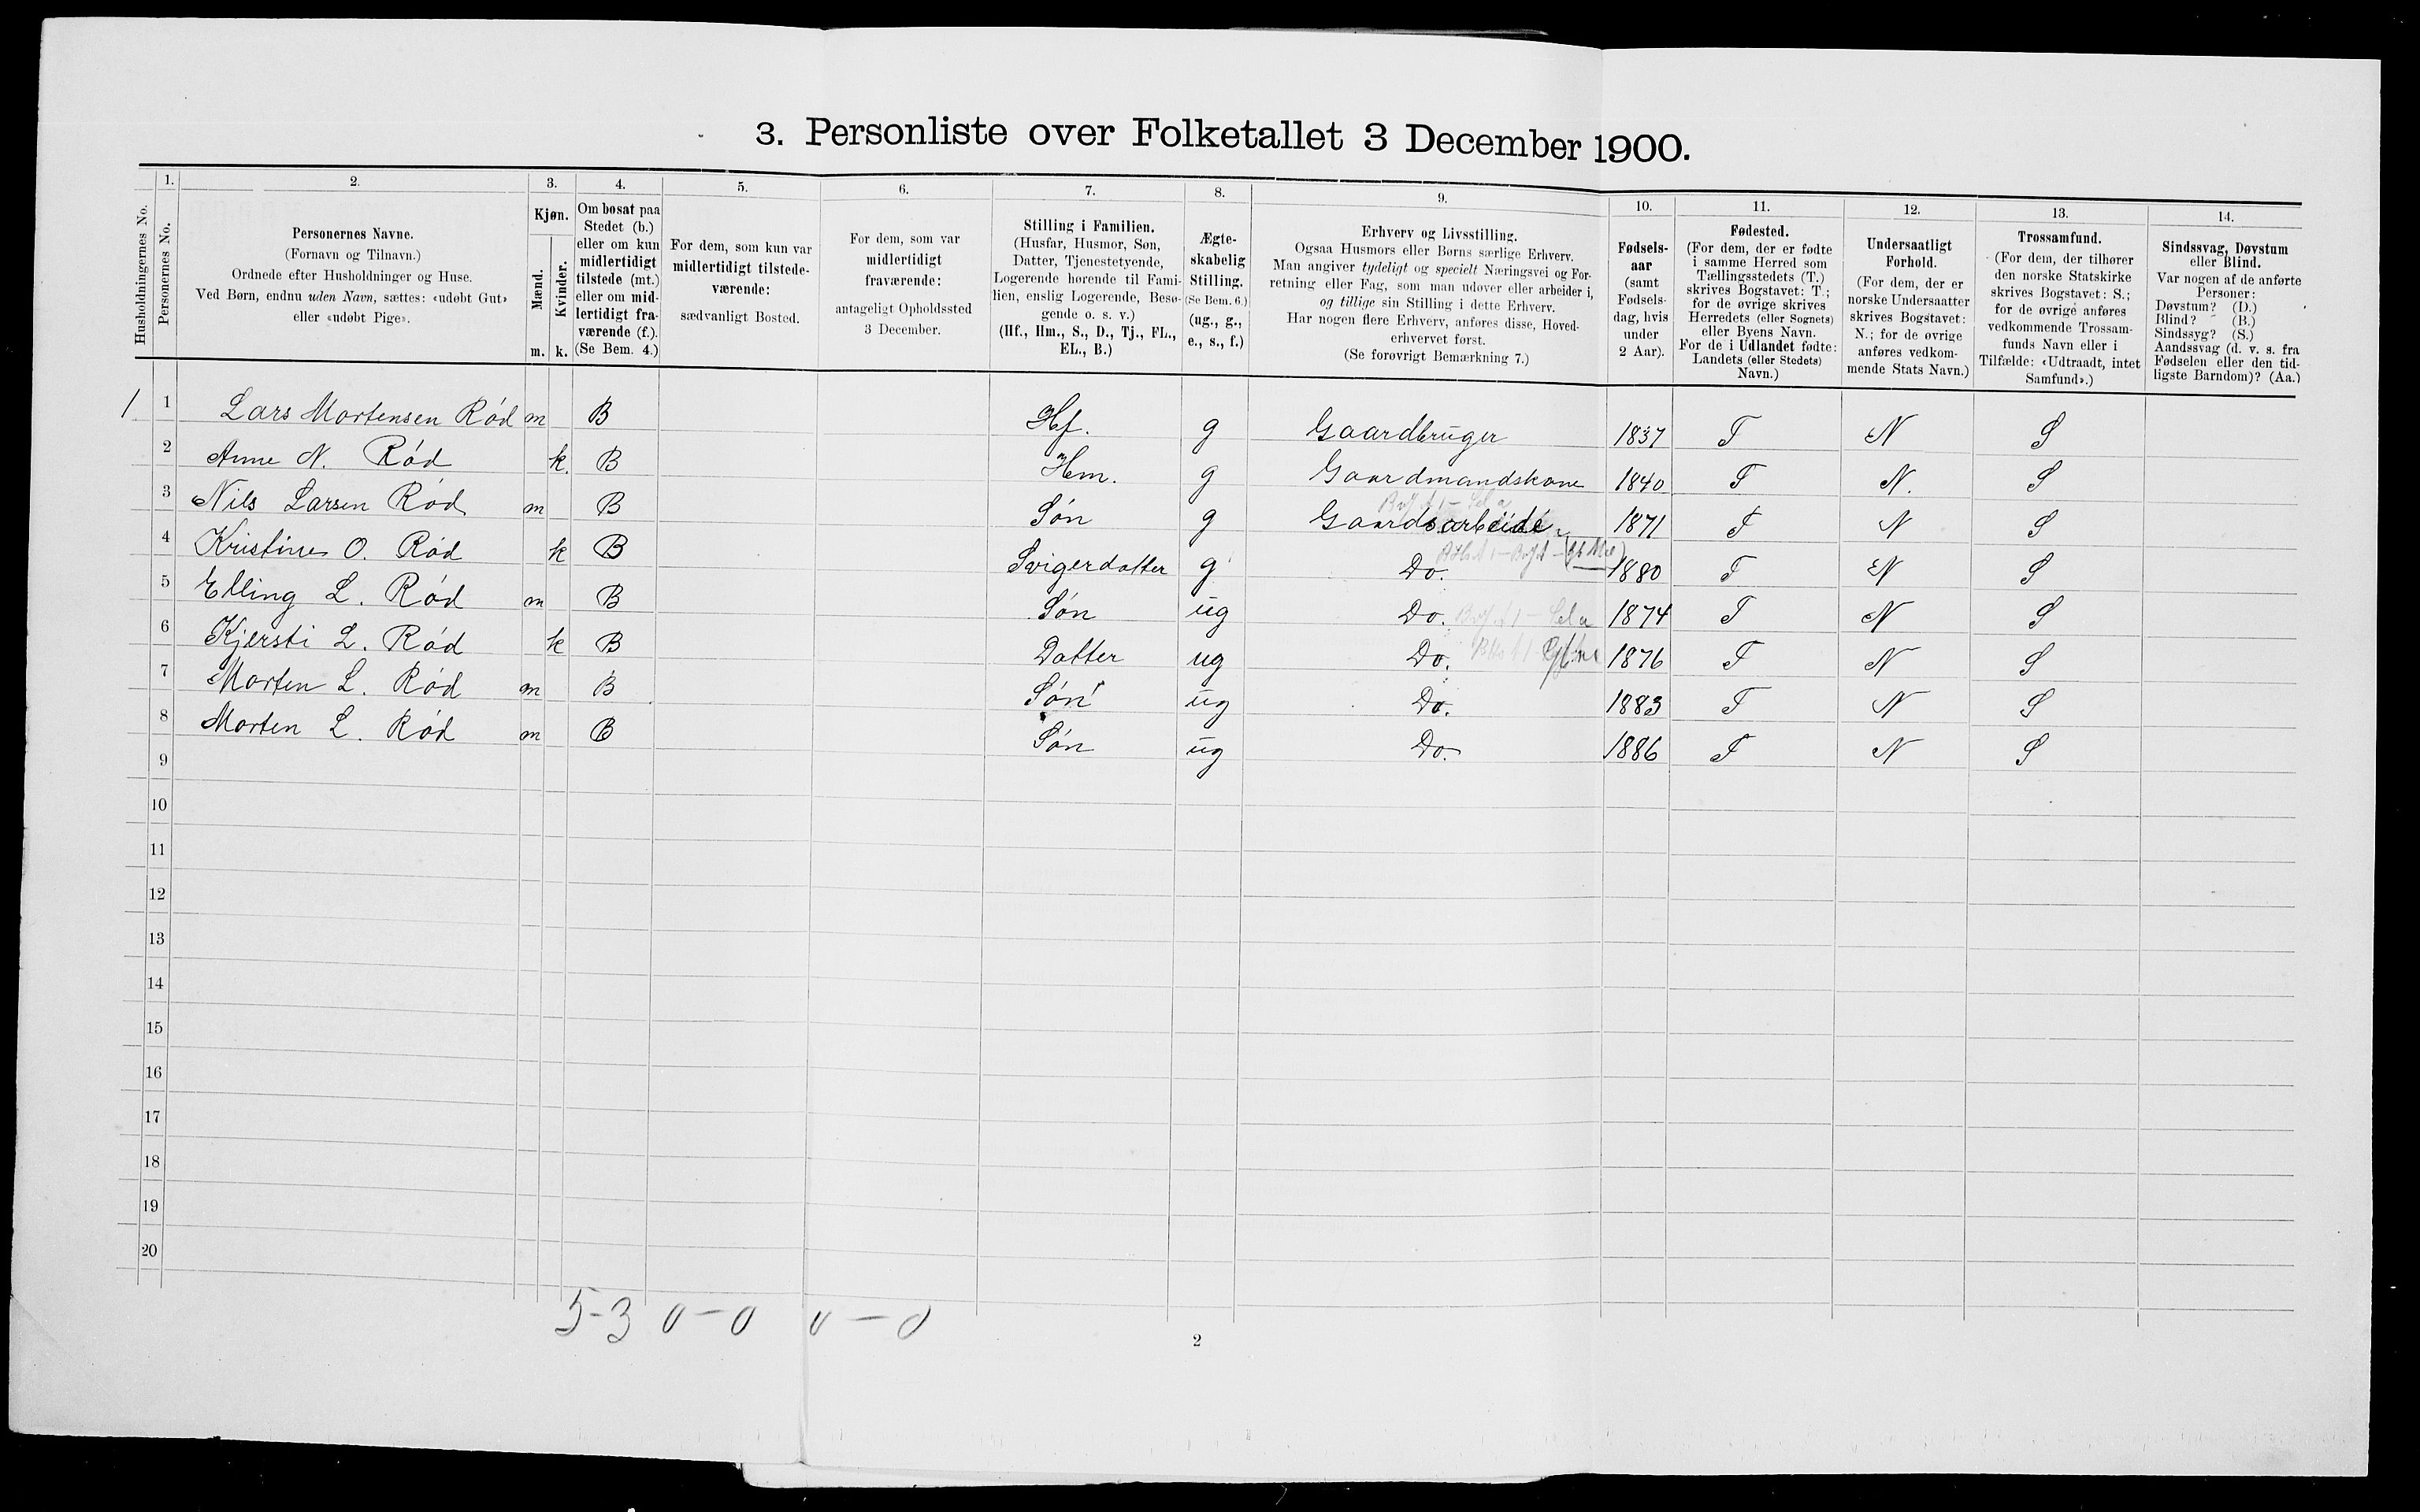 3. Personliste over Folketallet 3 December 1900.
1. 2. 3. 4. 5. 6. 7. 8. 9. 10. 11. 12. 13. 14.
Husholdningernes No.
Personernes No.
Personernes Navne.
(Fornavn og Tilnavn.)
Ordnede efter Husholdninger og Huse.
Ved Børn, endnu uden Navn, sættes: «udøbt Gut»
eller «udøbt Pige».
Kjøn.
Mænd.
Kvinder.
m. k.
Om bosat paa
Stedet (b.)
eller om kun
midlertidigt
tilstede (mt.)
eller om mid-
lertidigt fra-
værende (f.).
(Se Bem. 4.)
For dem, som kun var
midlertidigt tilstede-
værende:
sædvanligt Bosted.
For dem, som var
midlertidigt
fraværende:
antageligt Opholdssted
3 December.
Stilling i Familien.
(Husfar, Husmor, Søn,
Datter, Tjenestetyende,
Logerende hørende til Fami-
lien, enslig Logerende, Besø-
gende o. s. v.)
(Hf., Hm., S., D., Tj., FL.,
EL., B.)
Ægte-
skabelig
Stilling.
(Se Bem. 6.)
(ug., g.,
e., s., f.)
Erhverv og Livsstilling.
Ogsaa Husmors eller Børns særlige Erhverv.
Man angiver tydeligt og specielt Næringsvei og For-
retning eller Fag, som man udøver eller arbeider i,
og tillige sin Stilling i dette Erhverv.
Har nogen flere Erhverv, anføres disse, Hoved-
erhvervet først.
(Se forøvrigt Bemærkning 7.)
Fødsels-
aar
(samt
Fødsels-
dag, hvis
under
2 Aar).
Fødested.
(For dem, der er fødte
i samme Herred som
Tællingsstedets (T.)
skrives Bogstavet: T.;
for de øvrige skrives
Herredets (eller Sognets)
eller Byens Navn.
For de i Udlandet fødte:
Landets (eller Stedets)
Navn.)
Undersaatligt
Forhold.
(For dem, der er
norske Undersaatter
skrives Bogstavet:
N.; for de øvrige
anføres vedkom-
mende Stats Navn.)
Trossamfund.
(For dem, der tilhører
den norske Statskirke
skrives Bogstavet: S.;
for de øvrige anføres
vedkommende Trossam-
funds Navn eller i
Tilfælde: «Udtraadt, intet
Samfund».)
Sindssvag, Døvstum
eller Blind.
Var nogen af de anførte
Personer:
Døvstum? (D.)
Blind? (B.)
Sindssyg? (S.)
Aandssvag (d. v. s. fra
Fødselen eller den tid-
ligste Barndom)? (Aa.)
1 1 Lars Mortensen Rød m B Hf. g Gaardbruger 1837 T N S
2 Anne N. Rød k. B Hm. g Gaardmandskone 1840 T N. S
3 Nils Larsen Rød m B Søn g Gaardsarbeider 1871 T N S
4 Kristine O. Rød k B Svigerdatter g Do. 1880 T N S
5 Elling L. Rød m B Søn ug Do. 1874 T N S
6 Kjersti L. Rød k B Datter ug Do. 1876 T N S
7 Morten L. Rød m B Søn ug Do. 1883 T N S
8 Morten L. Rød m B Søn ug Do. 1886 T N S
9
10
11
12
13
14
15
16
17
18
19
20
5-3 0-0 0-0
2